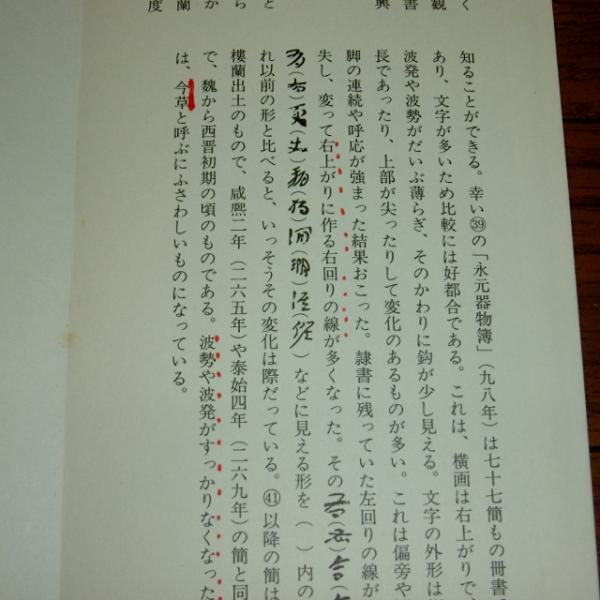 く
観
書
興
と
ら
か
蘭
度
知ることができる。幸い㊴の「永元器物簿」（九八年）は七十七簡もの冊書
あり、文字が多いため比較には好都合である。これは、横画は右上がりで、
波発や波勢がだいぶ薄らぎ、そのかわりに鈎が少し見える。文字の外形は
長であったり、上部が尖ったりして変化のあるものが多い。これは偏旁や
脚の連続や呼応が強まった結果おこった。隷書に残っていた左回りの線が
失し、変って右上がりに作る右回りの線が多くなった。その
などに見える形を（　）内の
れ以前の形と比べると、いっそうその変化は際だっている。㊶以降の簡は
樓蘭出土のもので、咸熙二年（二六五年）や泰始四年（二六九年）の簡と同
で、魏から西晋初期の頃のものである。波勢や波発がすっかりなくなった
は、今草と呼ぶにふさわしいものになっている。